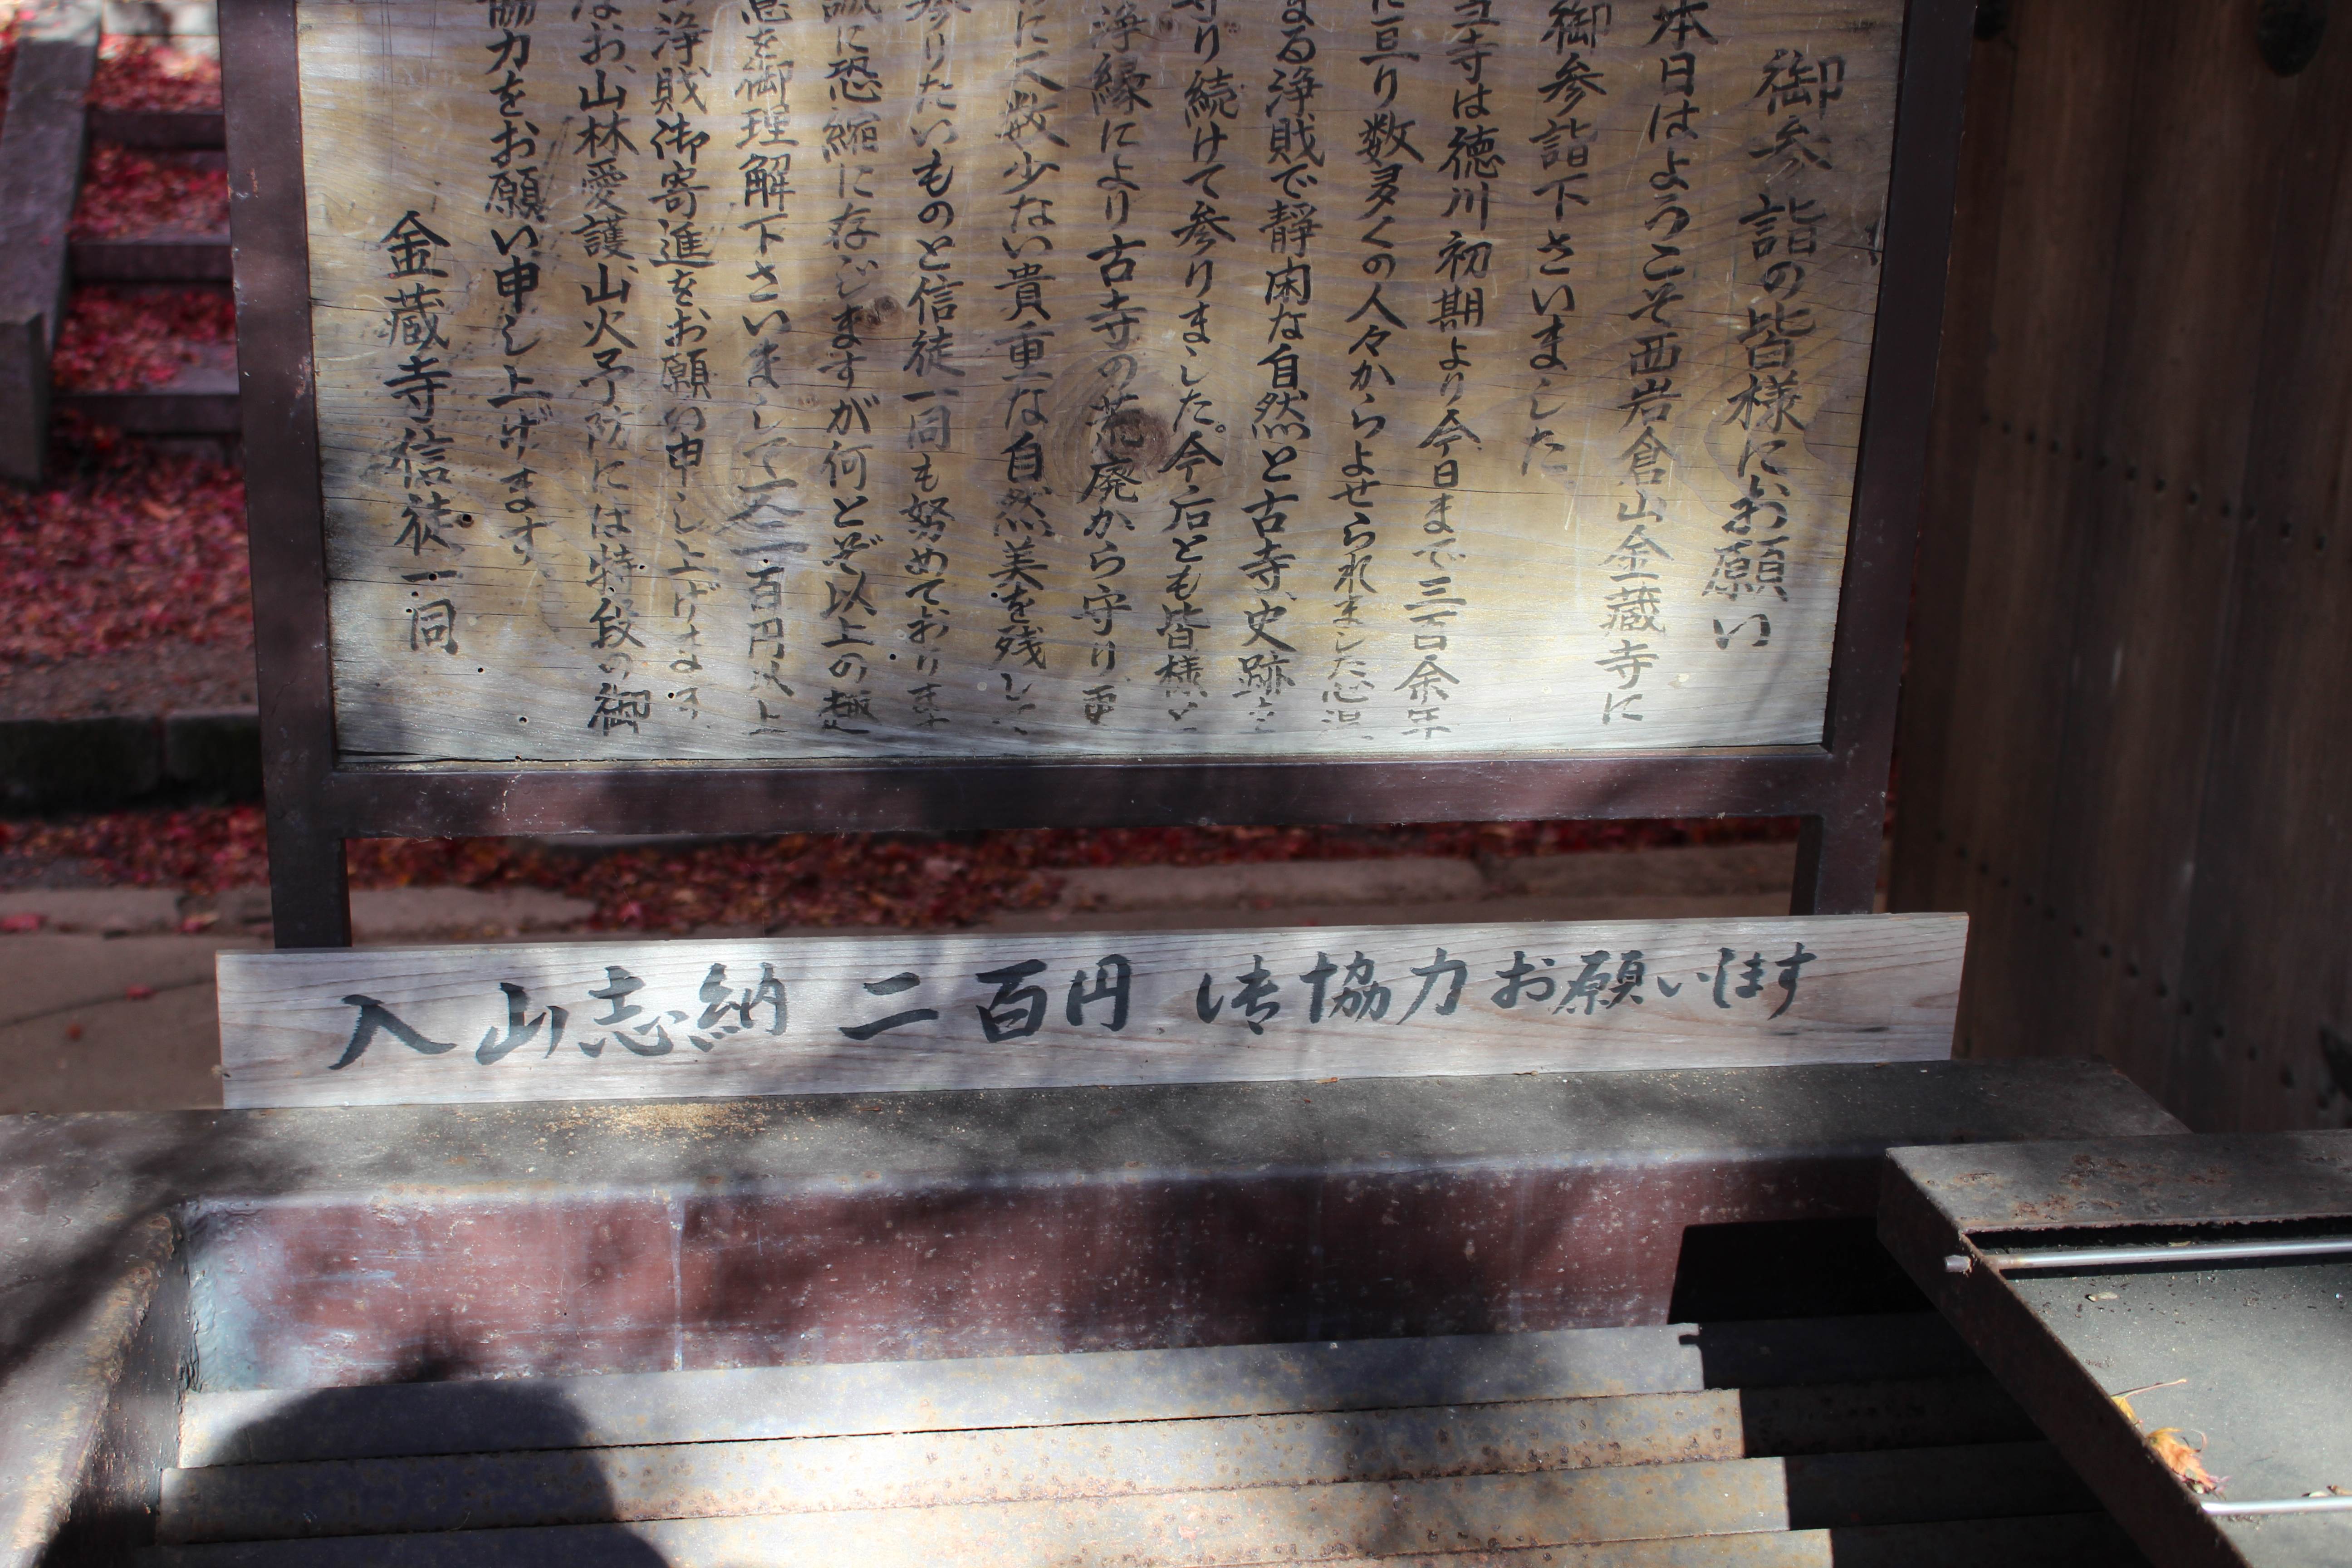 御参詣の皆様にお願い
本日はようこそ西岩倉山金蔵寺に
御参詣下さいました
寺は徳川初期より今日まで三百余年
に亘り数多くの人々からよせられました
る浄財で静閑な自然と古寺、史跡を
り続けて参りました。今后とも皆様と
浄縁により古寺の荒廃から守り更
に一人数少ない貴重な自然美を残して
参りたいものと信徒一同も努めております
に恐縮に存じますが何とぞ以上の趣
を御理解下さいまして一人二百円以上
浄財御寄進をお願い申し上げます
なお、山林愛護、山火予防には特段の御
協力をお願い申し上げます
金蔵寺信徒一同
入山志納 二百円 御協力お願いします